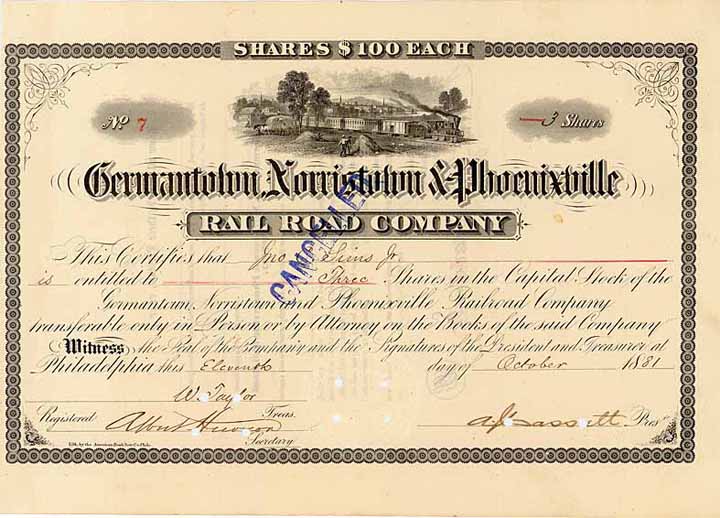 SHARES $100 EACH
No 7
3 Shares
Germantown, Norristown & Phoenixville
RAIL ROAD COMPANY
CANCELLED
This Certifies that Jno Sims Jr.
is entitled to Three Shares in the Capital Stock of the
Germantown, Norristown and Phoenixville Railroad Company
transferable only in Person or by Attorney on the Books of the said Company
Witness the Seal of the Company and the Signatures of the President and Treasurer at
Philadelphia this Eleventh day of October 1881
W. Taylor
Treas.
Registered Albert Secretary
A. J. Cassatt Pres
by the American Bank Note Co. Phila.